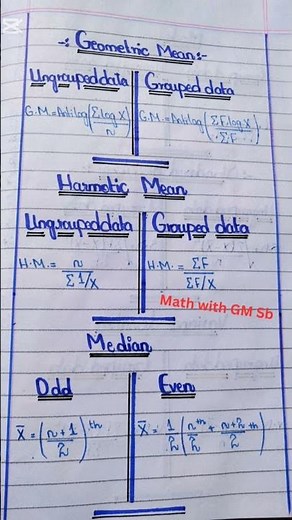 -: Geometric Mean:-
Ungrouped data
Grouped data
G.M=Antilog(Σlog X/n)
G.M.=Antilog(ΣF.log x/ΣF).
Harmonic Mean
Ungrouped data
Grouped data
H.M.= n/Σ1/x
H.M.= ΣF/ΣF/x
Math with GM Sb
Median
Odd
Even
X̄ = (n+1/2)th
X̄ = 1/2(nth/2 + n+2/2 th)